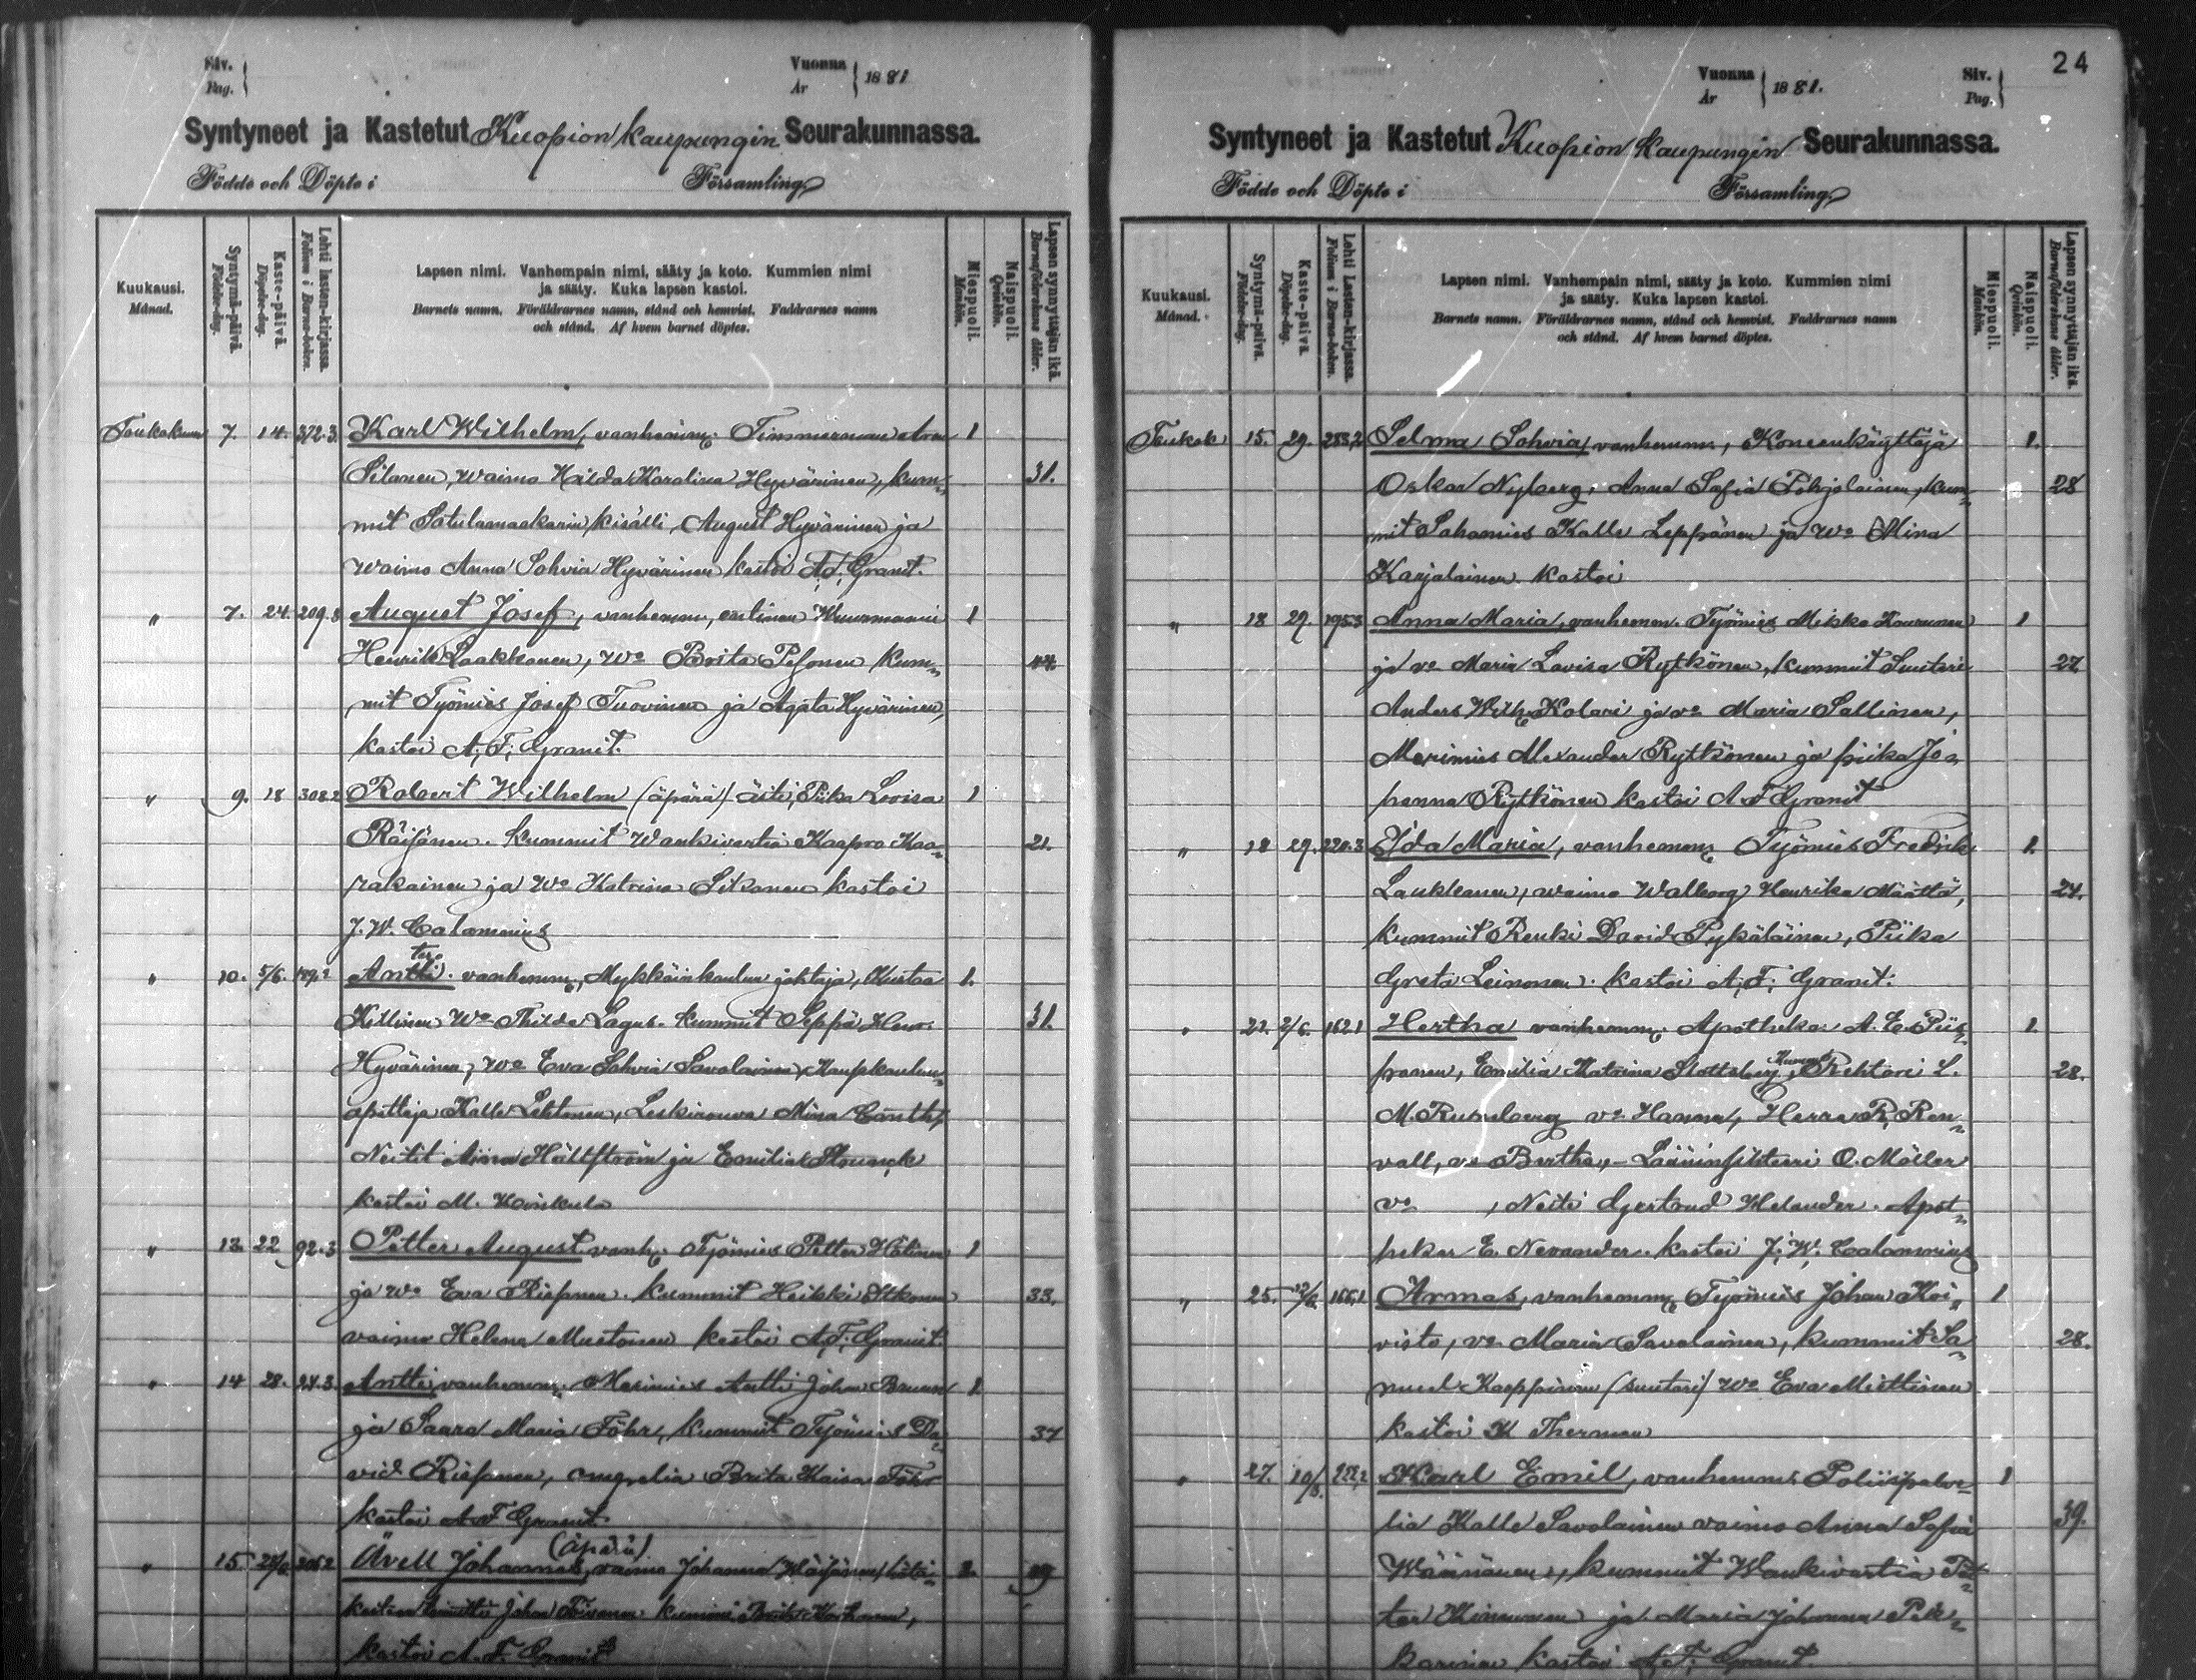 Siv.
Pag.
Vuonna
År
1881
Syntyneet ja Kastetut Kuopion kaupungin Seurakunnassa.
Födde och Döpte i Församling
Kuukausi.
Månad.
Syntymä-päivä.
Födelse-dag.
Kaste-päivä.
Döpelse-dag.
Lehti lasten-kirjassa.
Folium i Barna-boken.
Lapsen nimi. Vanhempain nimi, sääty ja koto. Kummien nimi
ja sääty. Kuka lapsen kastoi.
Barnets namn. Föräldrarnes namn, stånd och hemvist. Faddrarnes namn
och stånd. Af hvem barnet döptes.
Miespuoli.
Mankön.
Naispuoli.
Qvinkön.
Lapsen synnyttäjän ikä.
Barnaföderskans ålder.
Toukokuu 7. 14. 372.3. Karl Wilhelm, vanhemm: Timmermanni 1
Silanen, waimo Hilda Karolina Hyvärinen, kum- 31.
mit Satulamaakarin kisälli August Hyvärinen ja
waimo Anna Sohvia Hyvärinen kastoi A.F. Granit.
" 7. 24. 209.3 August Josef, vanhemm, entinen 1
Henrik Laakkonen, wo Brita Pesonen kum- 44.
mit Työmies Josef Tuovinen ja Agata Hyvärinen,
kastoi A.F. Granit.
" 9. 18 308.2 Robert Wilhelm (äpärä) äiti, Piika Lovisa 1
Räisänen. Kummit Wankivartia Kaapro Kaa- 21.
rakainen ja Wo Katrina Sikanen kastoi
J.W. Calamnius
" 10. 5/6. Antti. vanhemm, Mykkäinkoulun johtaja, Kustaa 1.
Killinen Wo Thilda Lagus. kummit Seppä Henr. 31.
Hyvärinen, Wo Eva Sohvia Savolainen, Kaupkoulun-
opettaja Kalle Lehtonen, Leskirouva Mina Canth,
Neitit Aina Hällström ja Emilia Strunck
kastoi M. Koiskula
" 13. 22 92.3 Petter August vanh. Työmies Petter 1
ja wo Eva Riepunen. kummit Heikki Itkonen 33.
vaimo Helena Mustonen kastoi A.F. Granit.
" 14 28. 24.3. Antti, vanhemm. Merimies Antti Johan Bruun 1
ja Saara Maria Föhr, kummit Työmies Da- 37
vid Riepunen, Brita Kaisa Föhr
kastoi A.F Granit
(äpärä)
" 15. Johannes, vaimo Johanna Wäisänen 1.
Johan kummi
kastoi A.F. Granit
24
Vuonna
År
1881.
Siv.
Pag.
Syntyneet ja Kastetut Kuopion Kaupungin Seurakunnassa.
Födde och Döpte i Församling
Kuukausi.
Månad.
Syntymä-päivä.
Födelse-dag.
Kaste-päivä.
Döpelse-dag.
Lehti Lasten-kirjassa.
Folium i Barna-boken.
Lapsen nimi. Vanhempain nimi, sääty ja koto. Kummien nimi
ja sääty. Kuka lapsen kastoi.
Barnets namn. Föräldrarnes namn, stånd och hemvist. Faddrarnes namn
och stånd. Af hvem barnet döptes.
Miespuoli.
Mankön.
Naispuoli.
Qvinkön.
Lapsen synnyttäjän ikä.
Barnaföderskans ålder.
Toukok 15. 29. 253,2 Selma Sohvia, vanhemm, Koneenkäyttäjä 1.
Oskar Nyberg, Anna Sofia Pohjolainen, kum- 28
mit Sahamies Kalle Leppänen ja Wo Mina
Karjalainen. Kastoi
" 18 29. 195.3 Anna Maria, vanhemm. Työmies Mikko Kaurunen 1
ja vo Maria Lovisa Rytkönen, kummit Suutari 27.
Anders Wilh Kolari ja vo Maria Sallinen,
Merimies Alexander Rytkönen ja piika Jo-
hanna Rytkönen kastoi A.F Granit
" 18 29. 220.3 Ida Maria, vanhemm. Työmies Fredrik 1.
Laukkanen, waimo Walborg Henrika Määttä, 24.
kummit Renki David Pykäläinen, Piika
Greta Leinonen. kastoi A.F. Granit.
" 22. 2/6. 162.1 Hertha vanhemm. Apothekar A. E. Piis- 1.
panen, Emilia Katrina Kumm. Rehtori L. 28.
M. Runeberg vo Hanna, Herra R. Ren-
vall, vo Bertha, Lääninsihteeri O. Möller
vo , Neiti Gertrud Helander. Apot-
hekar E. Nevander. kastoi J.W. Calamnius
" 25. 166,1 Armas, vanhemm. Työmies Johan Koi- 1
visto, vo Maria Savolainen, kummit Sa- 28.
muel Kaeppinen (suutari) Wo Eva Miettinen
kastoi K Therman
" 27. 222,2 Karl Emil, vanhemm. Poliisipalve- 1
lia Kalle Savolainen vaimo Anna Sofia 39.
Wäänänen, kummit Wankivartia Pet-
ter Kinnunen ja Maria Johanna Pik-
karinen kastoi A.F. Granit.